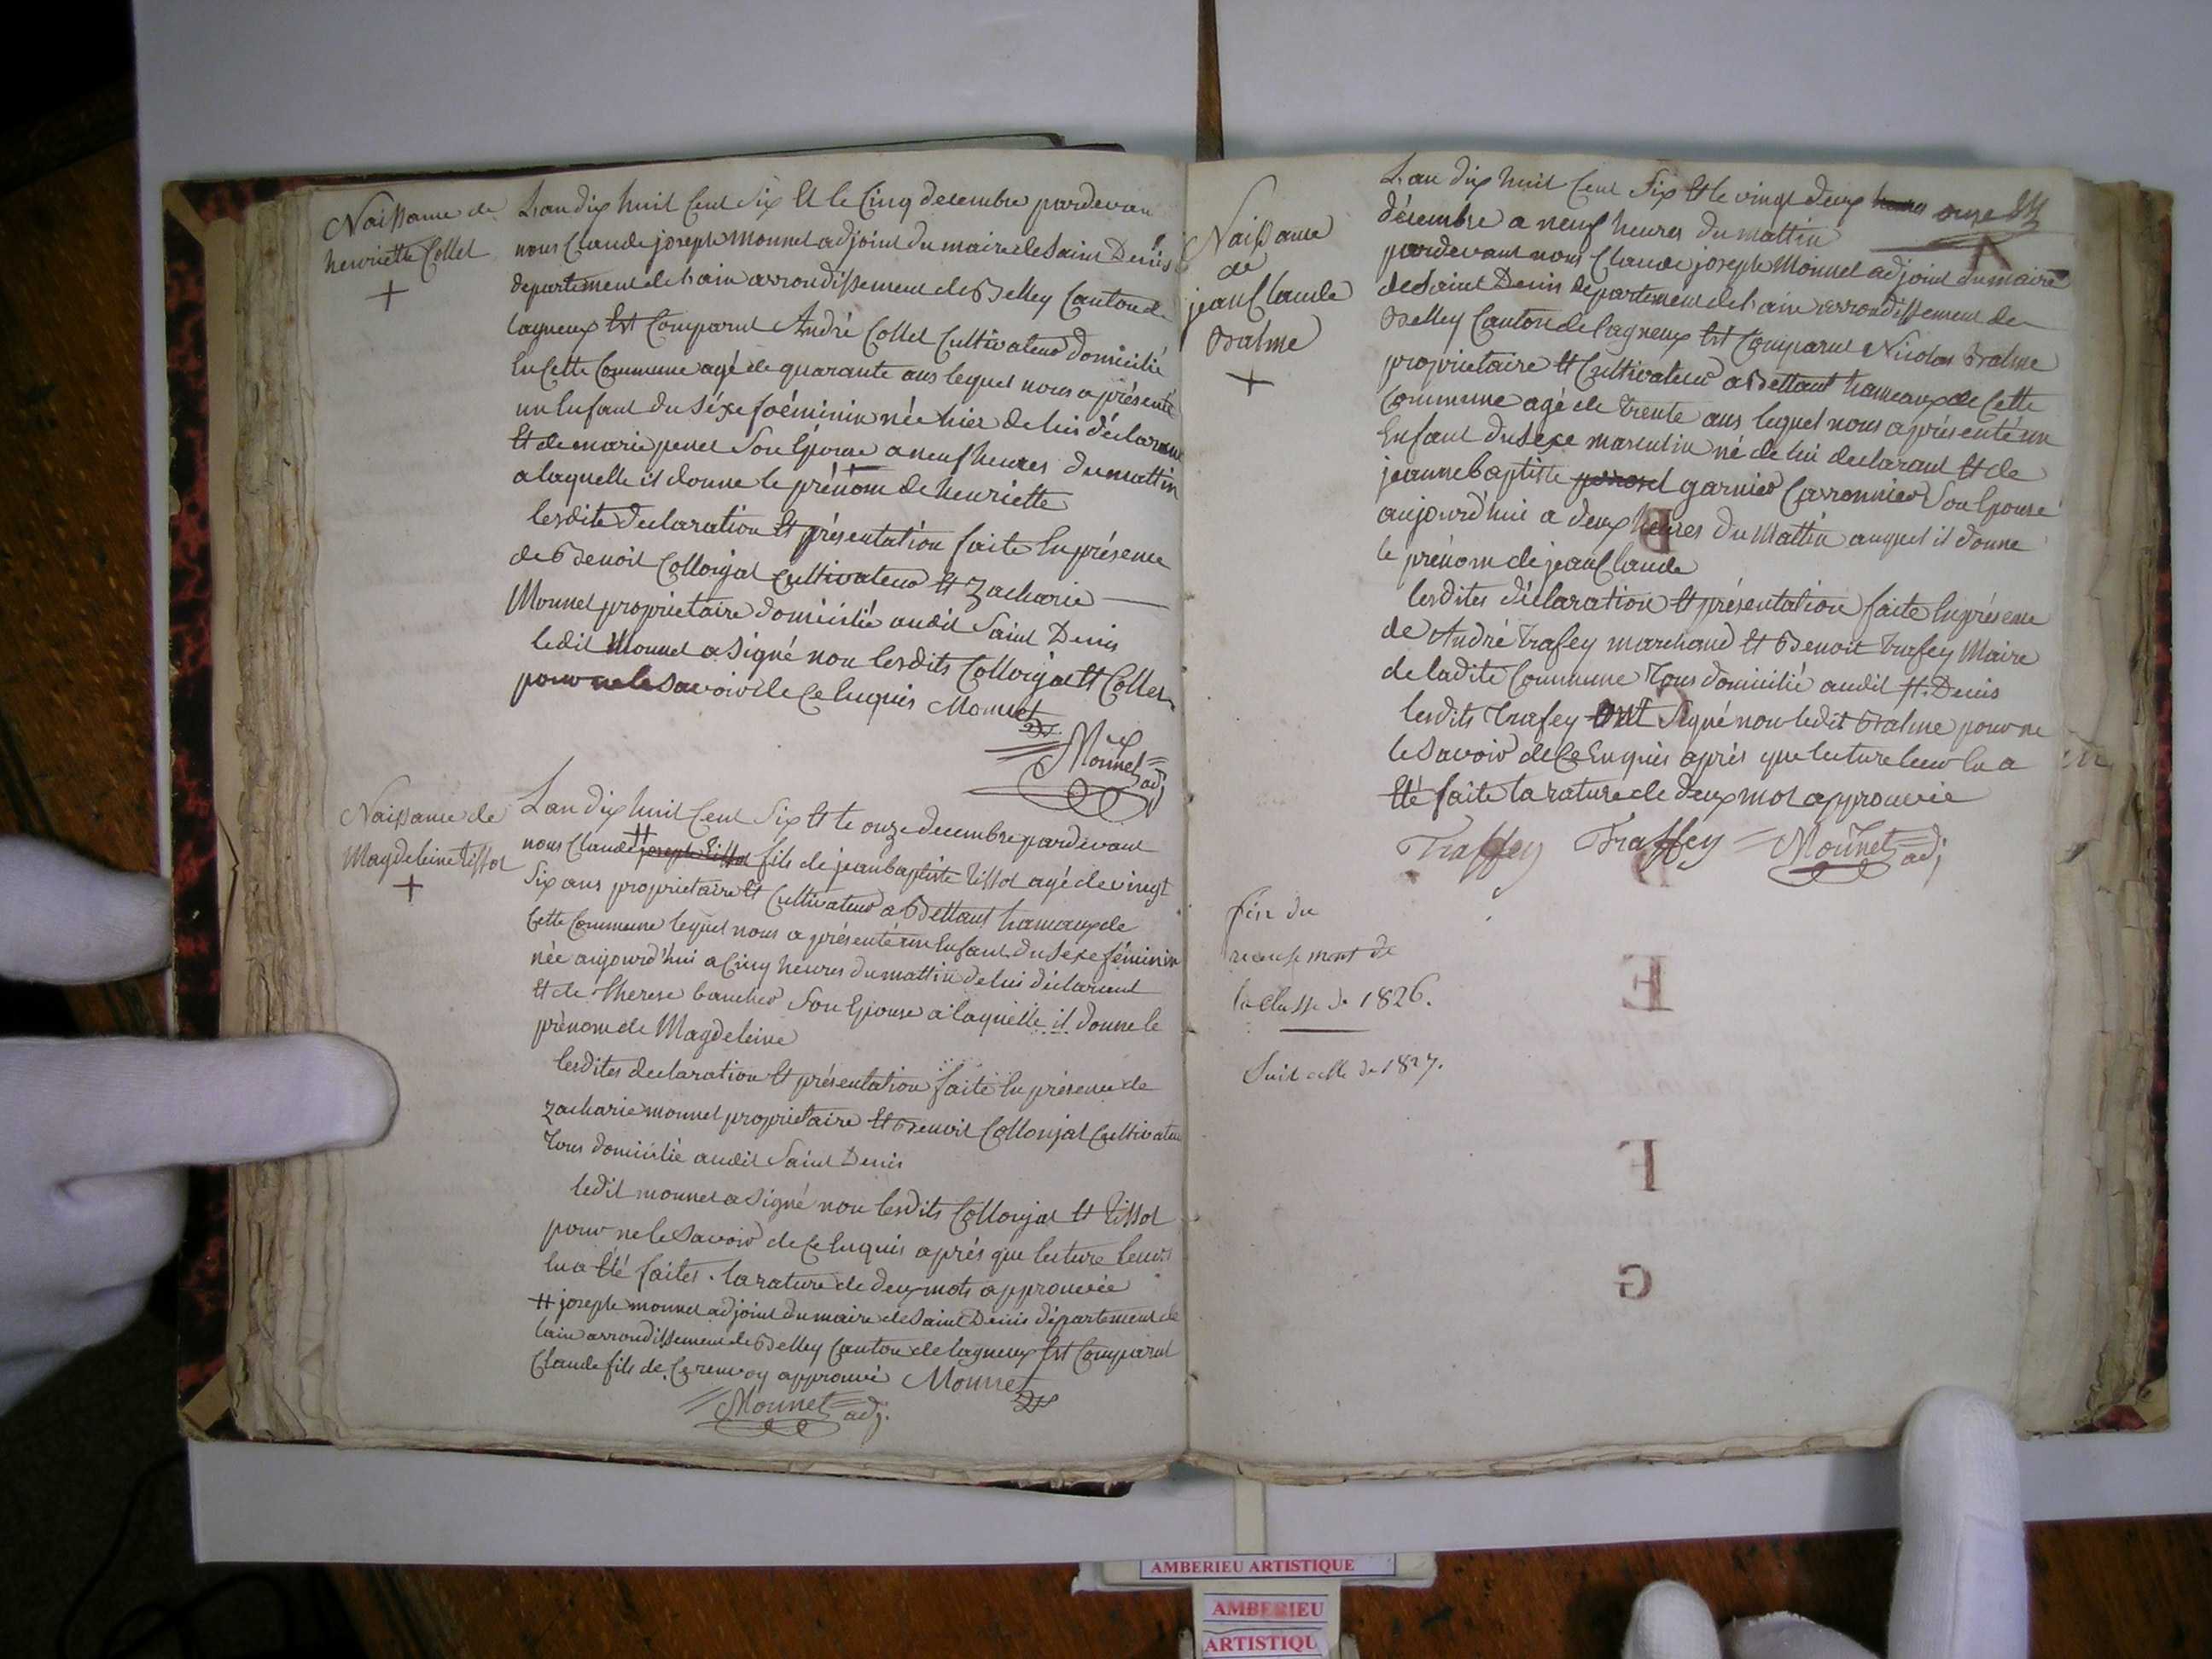 Naissance de
henriette Collet
L'an dix huit Cent Six Et le Cinq decembre pardevan
nous Claude joseph Monnet adjoint du maire de Saint Denis
departement de l'ain arrondissement de Belley Canton de
lagneux Est Comparut André Collet Cultivateur domicilié
En Cette Commune agé de quarante ans lequel nous a présenté
un Enfant du Séxe foéminin née hier de lui déclarant
Et de marie penet Son Epouse a neuf heures du mattin
a laquelle il donne le prénom de henriette
lesdite declaration Et présentation faite En présence
de Benoit Collonjat Cultivateur Et Zacharie
Monnet proprietaire domicilié audit Saint Denis
ledit Monnet a Signé non lesdits Collonjat Et Collet
pour ne le Savoir de Ce Enquis Monnet
Monnet adj
Naissance de
Magdeleine tissot
L'an dix huit Cent Six Et le onze decembre pardevant
nous Claude # joseph tissot fils de jean baptiste tissot agé de vingt
Six ans proprietaire Et Cultivateur a Bettant hamaux de
Cette Commune lequel nous a présenté un Enfant du Sexe féminin
née aujourd'hui a Cinq heures du mattin de lui déclarant
Et de therese Son Epouse a laquelle il donne le
prénom de Magdeleine
lesdites declaration Et présentation faite En présence de
zacharie monnet proprietaire Et Benoit Collonjat Cultivateur
Tous domicilié audit Saint Denis
ledit monnet a Signé non lesdits Collonjat Et tissot
pour ne le Savoir de Ce Enquis aprés que lecture leur
En a Eté faites . la rature de deux mots approuvée
# joseph monnet adjoint du maire de Saint Denis département de
lain arrondissement de Belley Canton de lagneux Est Comparut
Claude fils de. Ce renvoy approuvé Monnet
Monnet adj.
Naissance
de
jean Claude
Balme
L'an dix huit Cent Six Et le vingt deux heures onze
décembre a neuf heures du mattin
pardevant nous Claude joseph Monnet adjoint du maire
de Saint Denis departement de l'ain arrondissement de
Belley Canton de lagneux Est Comparut Nicolas Balme
proprietaire Et Cultivateur a Bettant hameaux de Cette
Commune agé de trente ans lequel nous a présenté un
Enfant du Sexe masculin né de lui declarant Et de
jeanne baptiste garnier Carronnier Son Epouse
aujourd'hui a deux heures du Mattin auquel il donne
le prénom de jean Claude
lesdites déclaration Et présentation faite En présence
de André trafey marchand Et Benoit trafey Maire
de ladite Commune Tous domicilié audit St. Denis
lesdits trafey ont Signé non ledit Balme pour ne
le Savoir de Ce Enquis aprés que lecture leur En a
Eté faite la rature de deux mot approuvée
Traffey Traffey Monnet adj
fin du
recensement de
la Classe de 1826.
Suit celle de 1827.
A
B
C
D
E
F
G
AMBERIEU ARTISTIQUE
AMBERIEU
ARTISTIQU